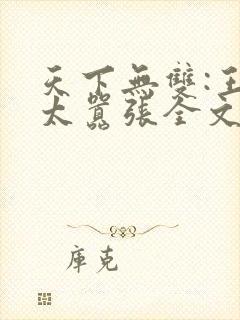 天下無雙:王
太囂張全文
庫克